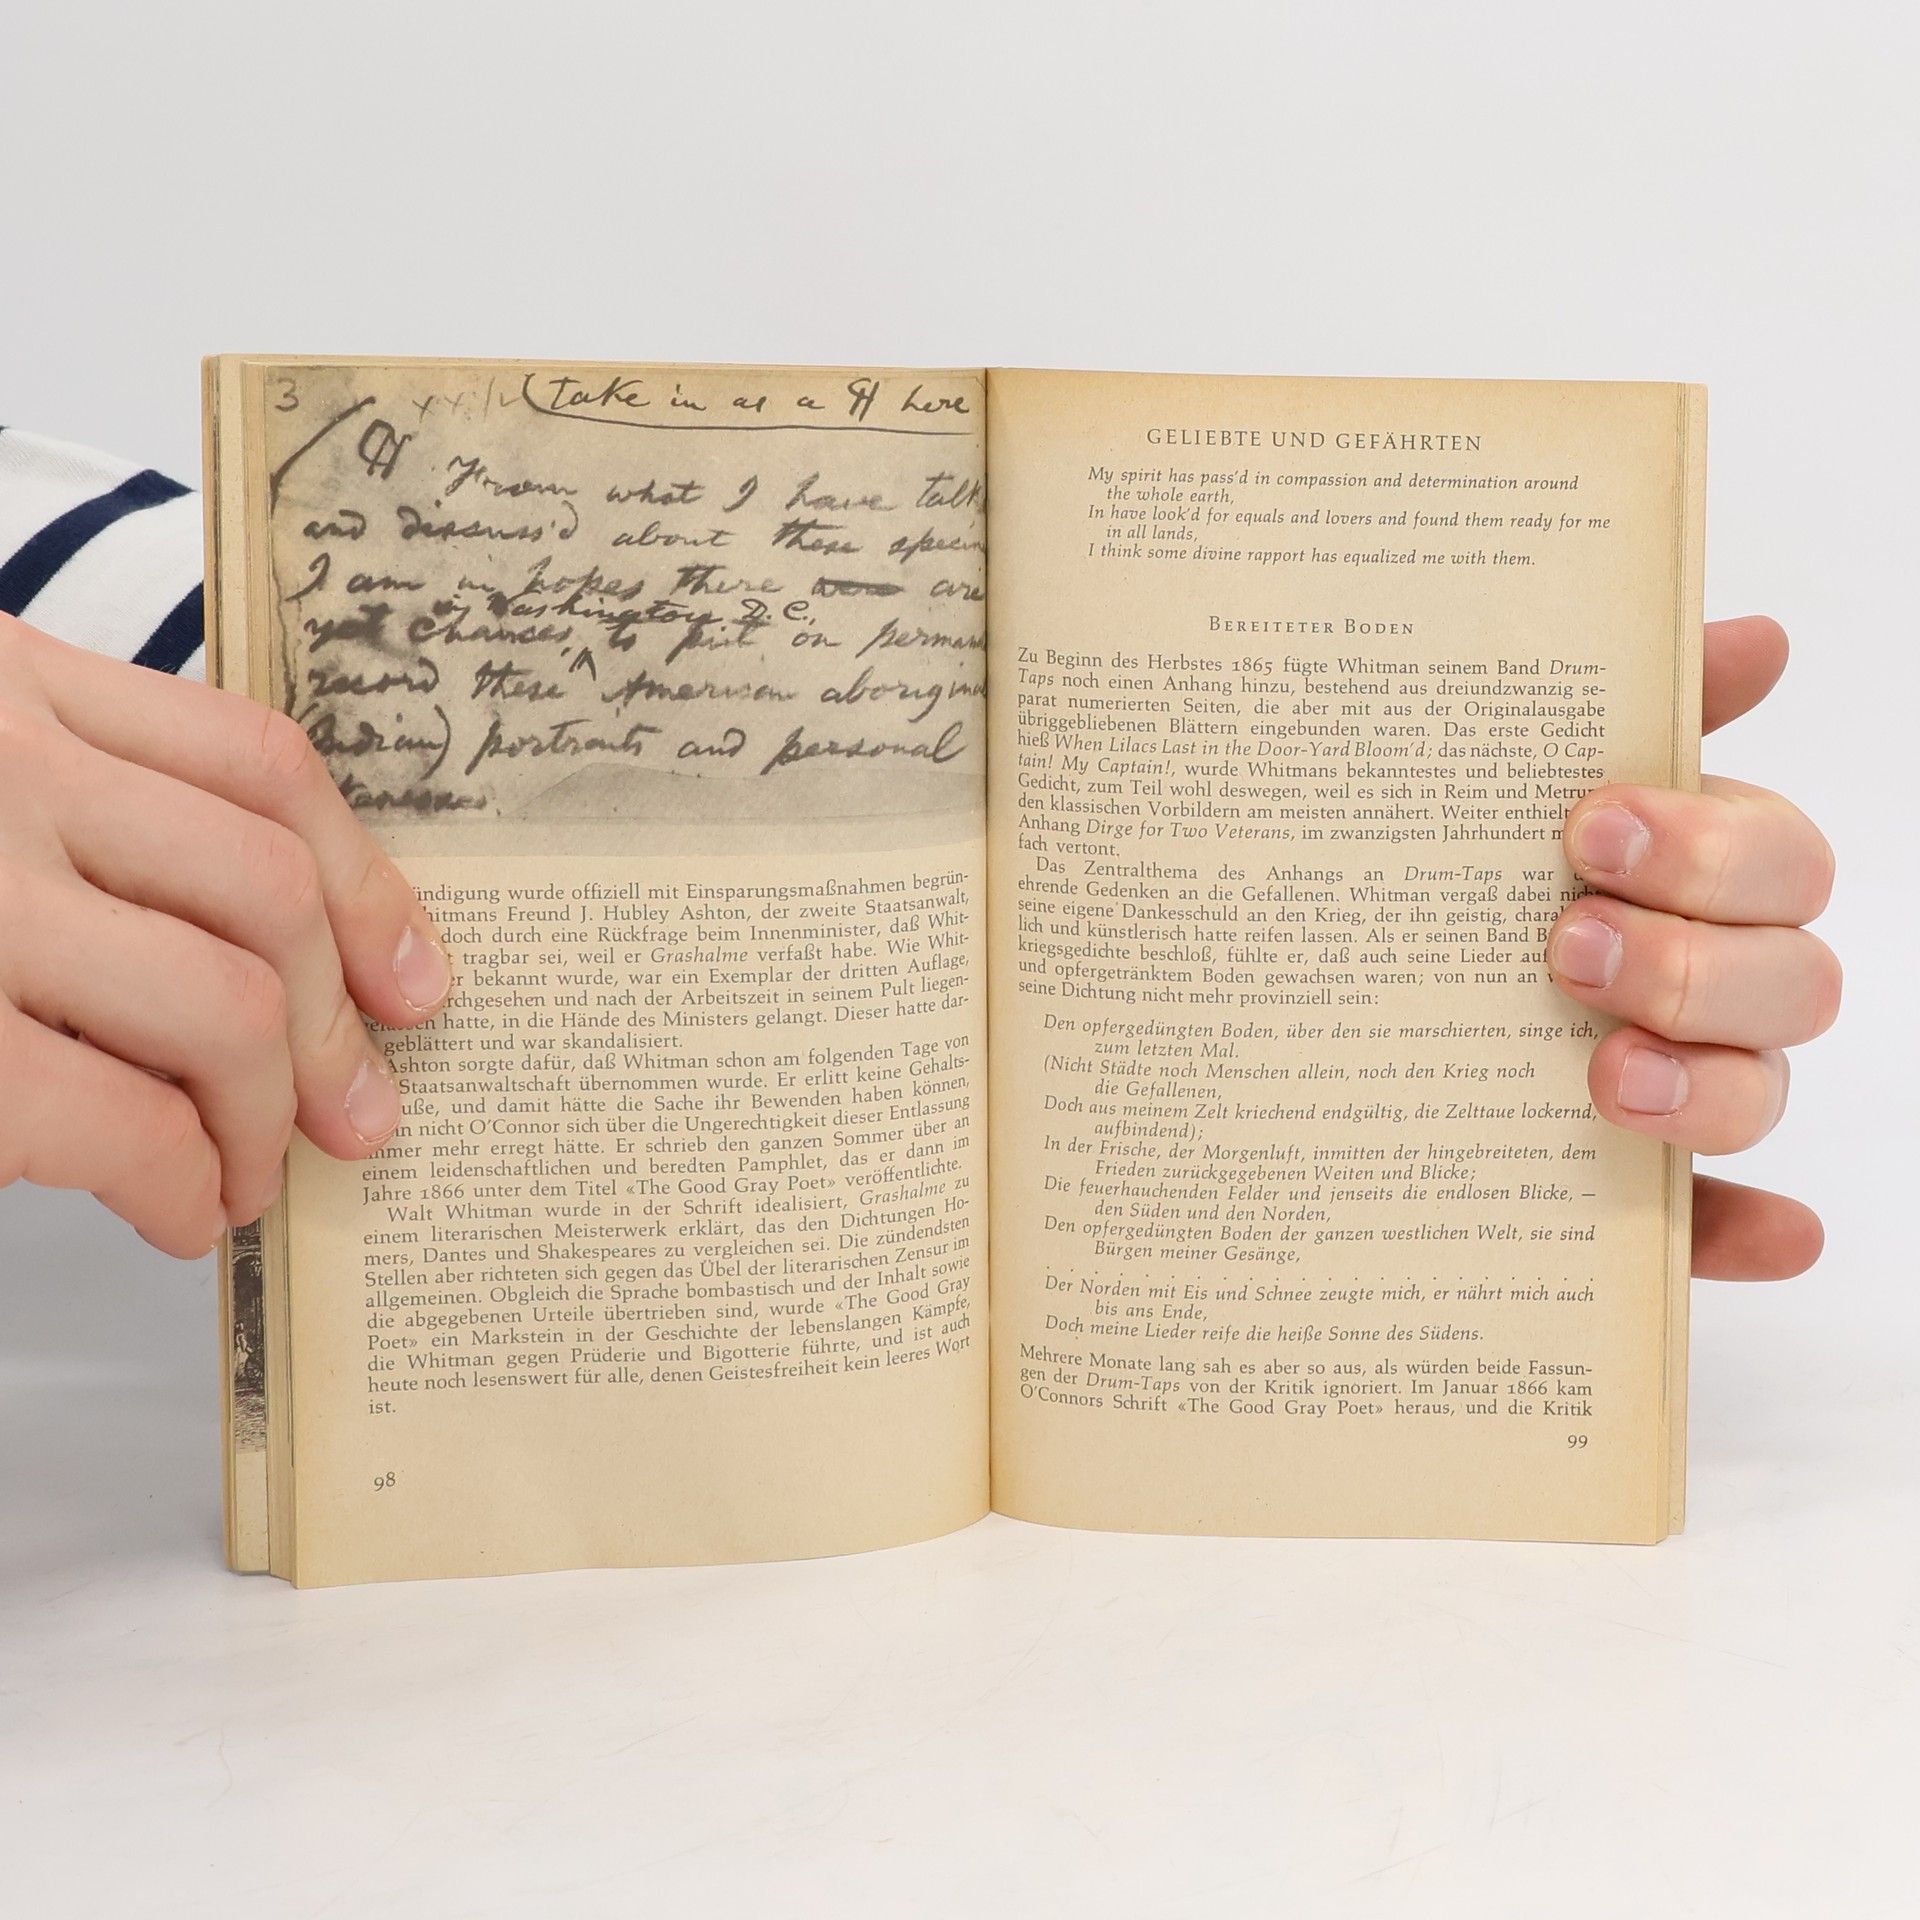 3
(take in as a ¶ here
¶ From what I have
and discuss'd about these
I am in hopes there are
in Washington D. C.,
yet chances, to put on
record these American
(Indian) portraits and personal
ündigung wurde offiziell mit Einsparungsmaßnahmen begrün-
hitmans Freund J. Hubley Ashton, der zweite Staatsanwalt,
doch durch eine Rückfrage beim Innenminister, daß Whit-
t tragbar sei, weil er Grashalme verfaßt habe. Wie Whit-
er bekannt wurde, war ein Exemplar der dritten Auflage,
rchgesehen und nach der Arbeitszeit in seinem Pult liegen-
hatte, in die Hände des Ministers gelangt. Dieser hatte dar-
geblättert und war skandalisiert.
Ashton sorgte dafür, daß Whitman schon am folgenden Tage von
Staatsanwaltschaft übernommen wurde. Er erlitt keine Gehalts-
uße, und damit hätte die Sache ihr Bewenden haben können,
nn nicht O'Connor sich über die Ungerechtigkeit dieser Entlassung
mmer mehr erregt hätte. Er schrieb den ganzen Sommer über an
einem leidenschaftlichen und beredten Pamphlet, das er dann im
Jahre 1866 unter dem Titel «The Good Gray Poet» veröffentlichte.
Walt Whitman wurde in der Schrift idealisiert, Grashalme zu
einem literarischen Meisterwerk erklärt, das den Dichtungen Ho-
mers, Dantes und Shakespeares zu vergleichen sei. Die zündendsten
Stellen aber richteten sich gegen das Übel der literarischen Zensur im
allgemeinen. Obgleich die Sprache bombastisch und der Inhalt sowie
die abgegebenen Urteile übertrieben sind, wurde «The Good Gray
Poet» ein Markstein in der Geschichte der lebenslangen Kämpfe,
die Whitman gegen Prüderie und Bigotterie führte, und ist auch
heute noch lesenswert für alle, denen Geistesfreiheit kein leeres Wort
ist.
98
GELIEBTE UND GEFÄHRTEN
My spirit has pass'd in compassion and determination around
the whole earth,
In have look'd for equals and lovers and found them ready for me
in all lands,
I think some divine rapport has equalized me with them.
BEREITETER BODEN
Zu Beginn des Herbstes 1865 fügte Whitman seinem Band Drum-
Taps noch einen Anhang hinzu, bestehend aus dreiundzwanzig se-
parat numerierten Seiten, die aber mit aus der Originalausgabe
übriggebliebenen Blättern eingebunden waren. Das erste Gedicht
hieß When Lilacs Last in the Door-Yard Bloom'd; das nächste, O Cap-
tain! My Captain!, wurde Whitmans bekanntestes und beliebtestes
Gedicht, zum Teil wohl deswegen, weil es sich in Reim und Metrum
den klassischen Vorbildern am meisten annähert. Weiter enthielt
Anhang Dirge for Two Veterans, im zwanzigsten Jahrhundert m
fach vertont.
Das Zentralthema des Anhangs an Drum-Taps war
ehrende Gedenken an die Gefallenen. Whitman vergaß dabei nicht
seine eigene Dankesschuld an den Krieg, der ihn geistig, chara
lich und künstlerisch hatte reifen lassen. Als er seinen Band B
kriegsgedichte beschloß, fühlte er, daß auch seine Lieder auf
und opfergetränktem Boden gewachsen waren; von nun an
seine Dichtung nicht mehr provinziell sein:
Den opfergedüngten Boden, über den sie marschierten, singe ich,
zum letzten Mal.
(Nicht Städte noch Menschen allein, noch den Krieg noch
die Gefallenen,
Doch aus meinem Zelt kriechend endgültig, die Zelttaue lockernd,
aufbindend);
In der Frische, der Morgenluft, inmitten der hingebreiteten, dem
Frieden zurückgegebenen Weiten und Blicke;
Die feuerhauchenden Felder und jenseits die endlosen Blicke, —
den Süden und den Norden,
Den opfergedüngten Boden der ganzen westlichen Welt, sie sind
Bürgen meiner Gesänge,
. . . . . . . . . . . . . . .
Der Norden mit Eis und Schnee zeugte mich, er nährt mich auch
bis ans Ende,
Doch meine Lieder reife die heiße Sonne des Südens.
Mehrere Monate lang sah es aber so aus, als würden beide Fassun-
gen der Drum-Taps von der Kritik ignoriert. Im Januar 1866 kam
O'Connors Schrift «The Good Gray Poet» heraus, und die Kritik
99